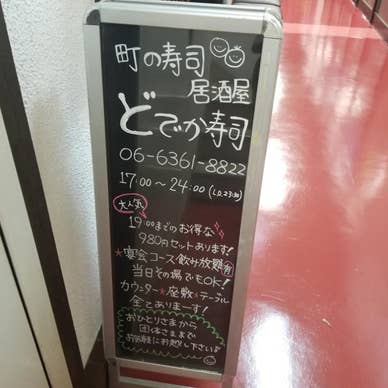 町の寿司
居酒屋
どでか寿司
06-6361-8822
17:00～24:00 (L.O.23:30)
大人気
19:00までのお得な
980円セットあります!
★宴会コース飲み放題有
当日その場でもOK!
カウンター★座敷★テーブル
全てありまーす!
おひとりさまから
団体さままで
お気軽にお越し下さい♪